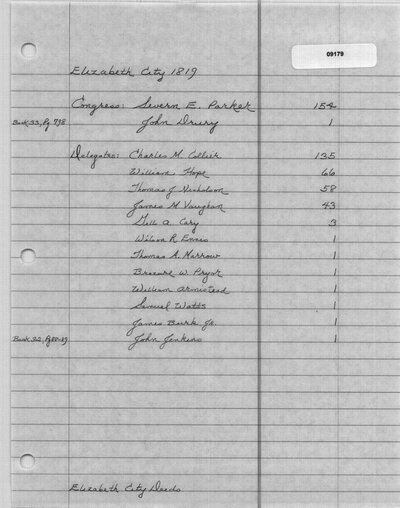 09179
Elizabeth City 1819
Congress: Severn E. Parker 154
Book 33, Pg 798 John Drury 1
Delegates: Charles M. Collier 135
William Hope 66
Thomas J. Nicholson 58
James M Vaughan 43
Gill A. Cary 3
Wilson R Ennis 1
Thomas A. Marrow 1
W. Pryor 1
William Armistead 1
Samuel Watts 1
James Burk Jr. 1
Book 32, Pg John Jenkins 1
Elizabeth City Deeds